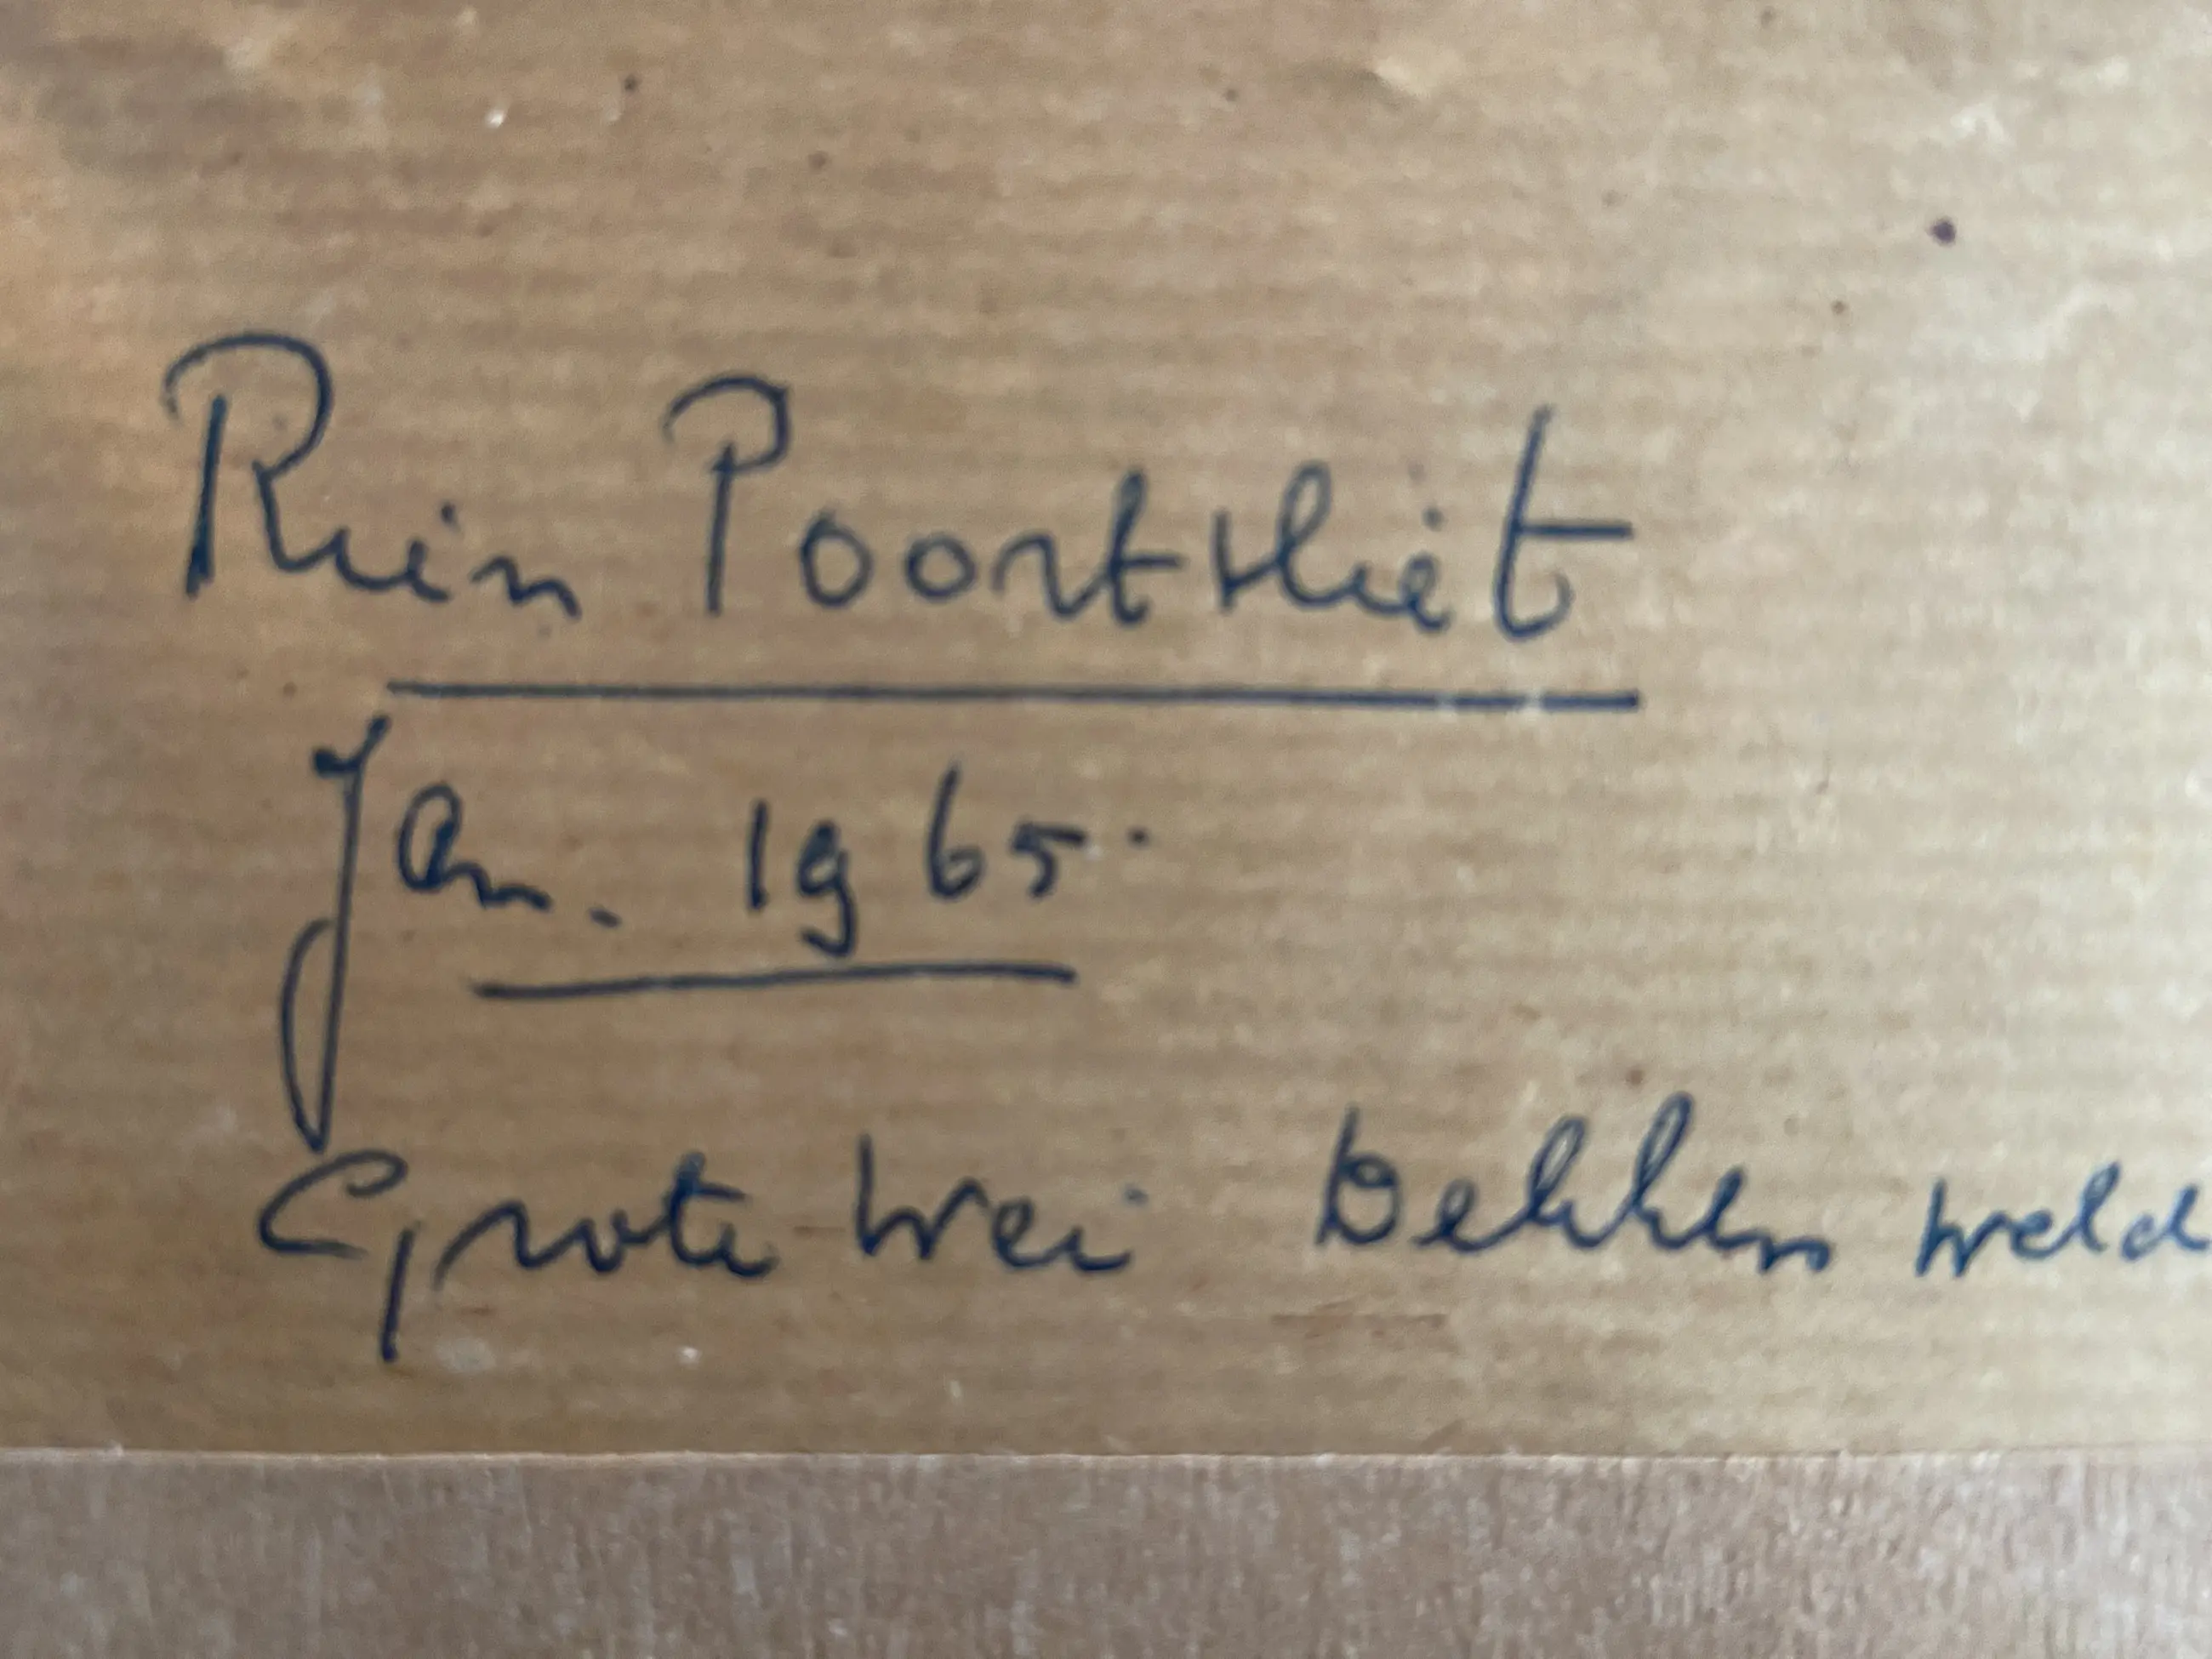 Rien Poortvliet
Jan. 1965.
Grote Wei Dekkers weld